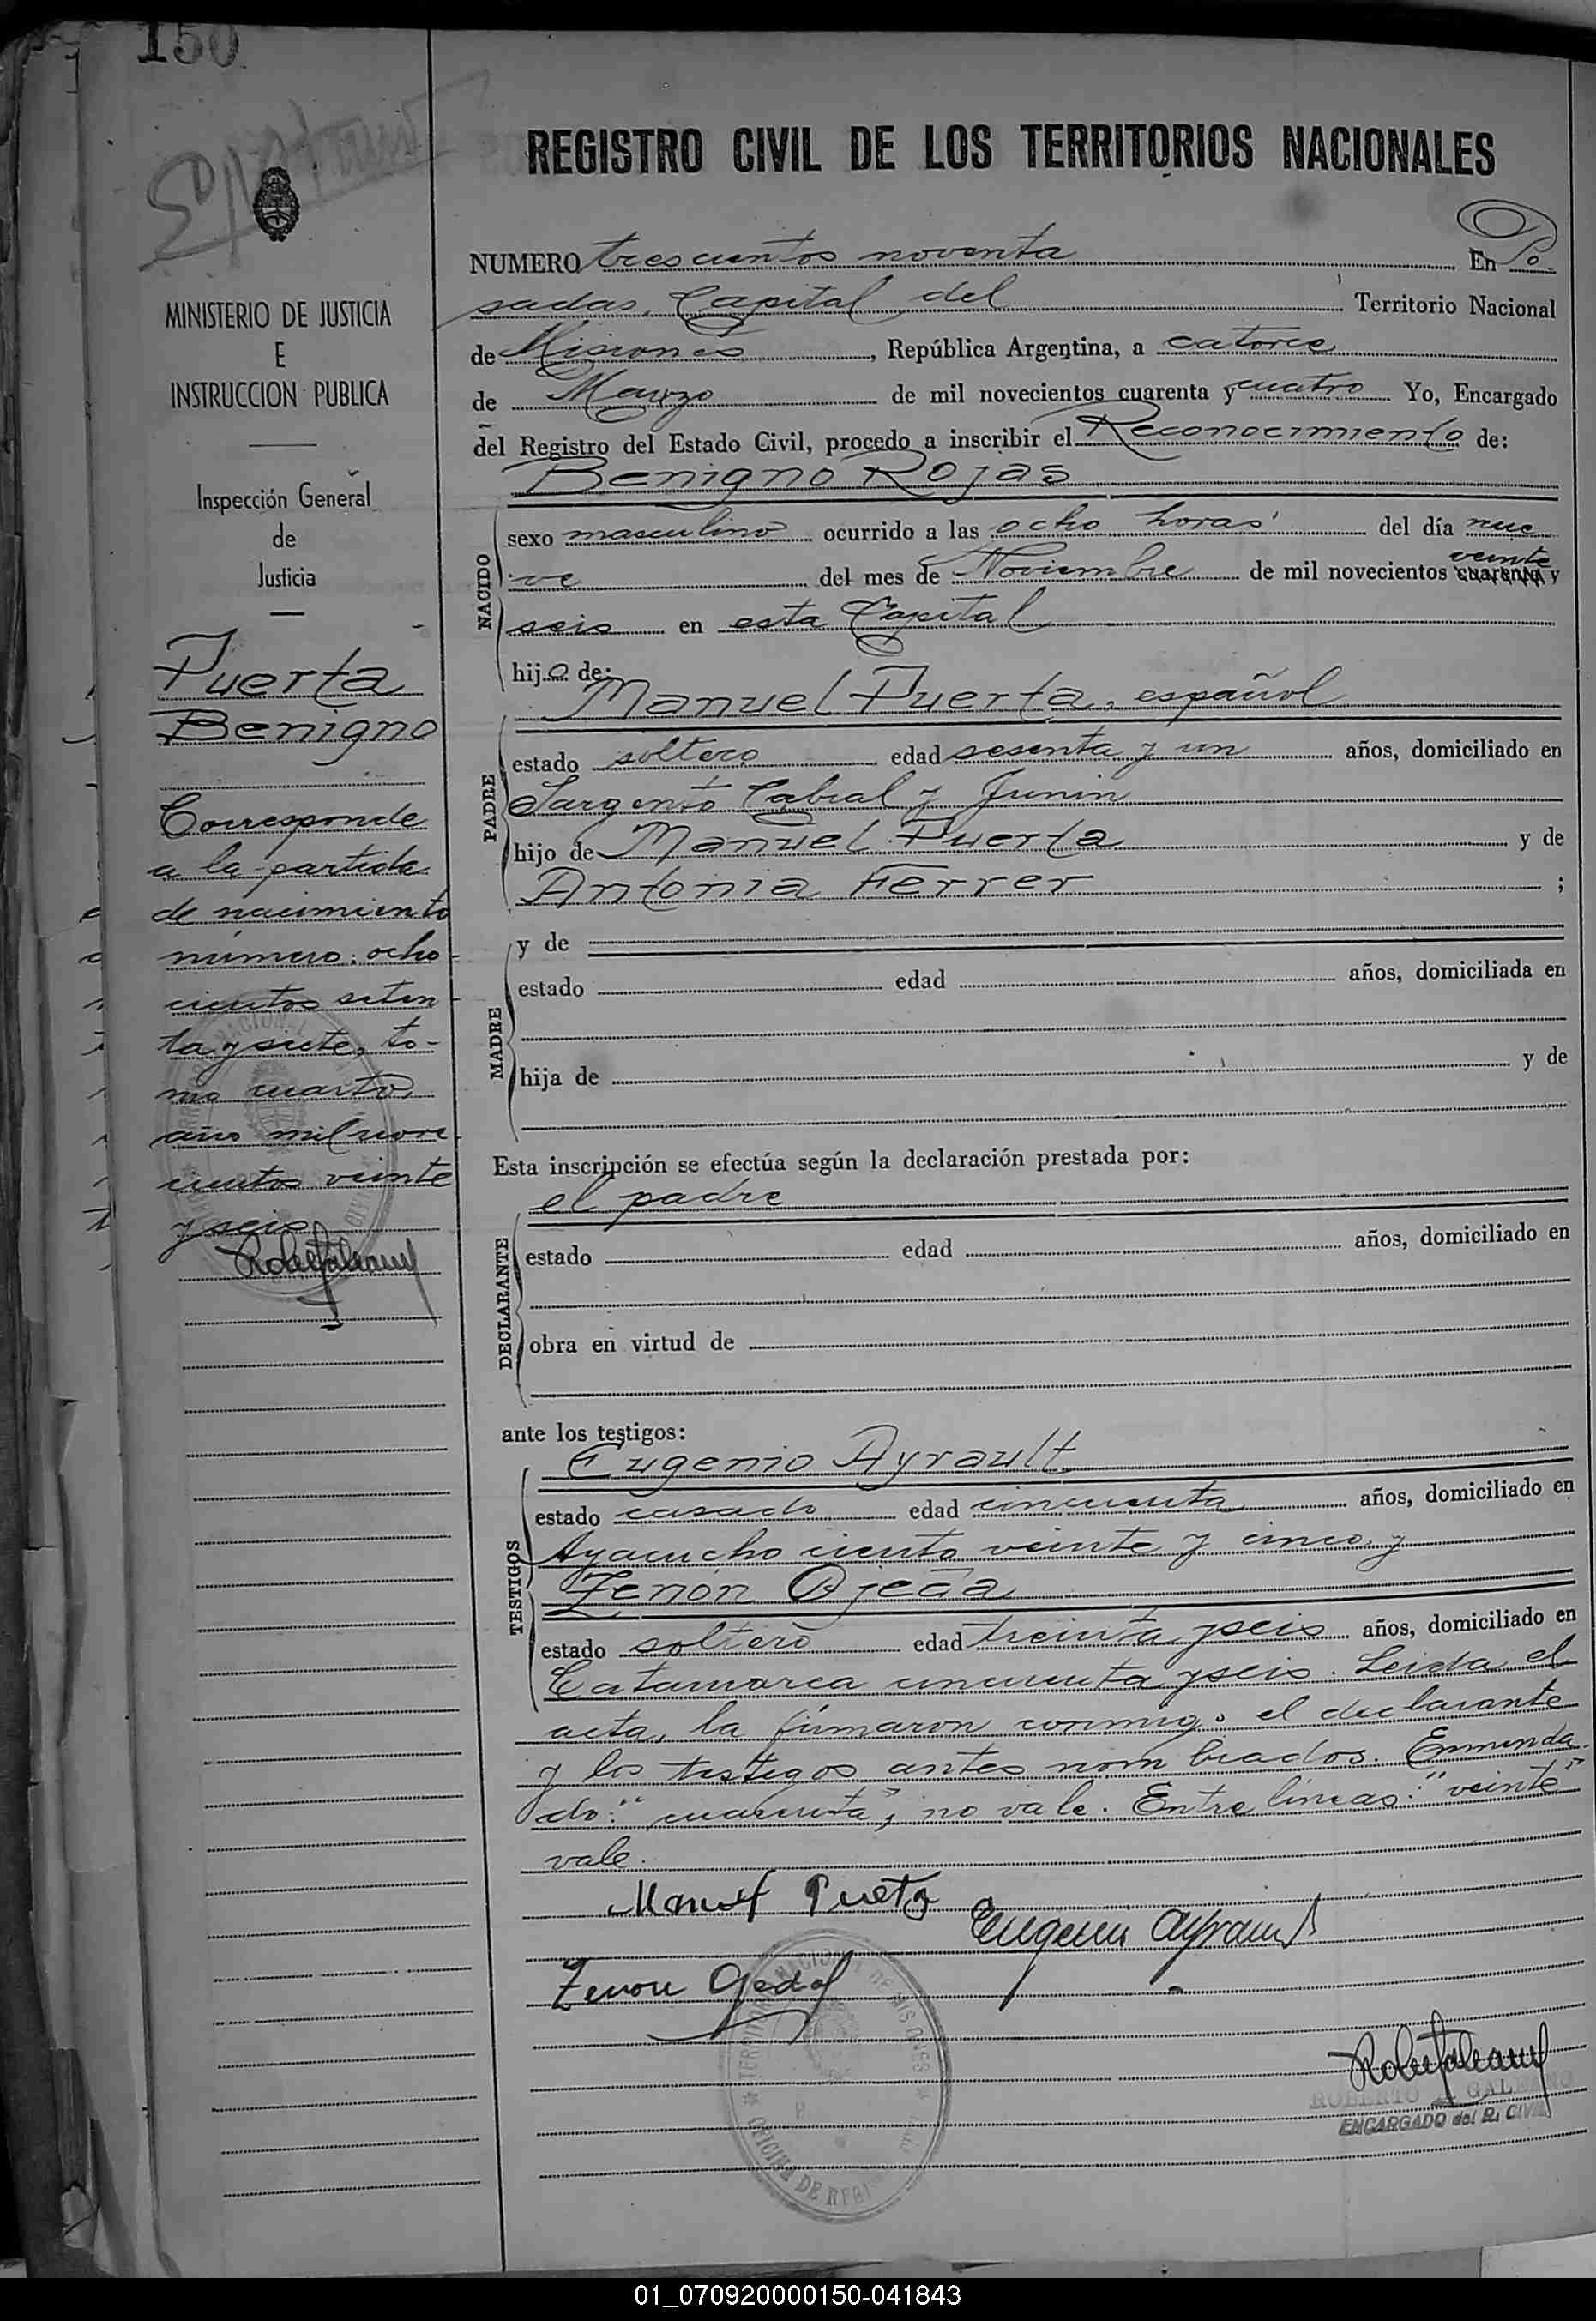 150
REGISTRO CIVIL DE LOS TERRITORIOS NACIONALES
MINISTERIO DE JUSTICIA
E
INSTRUCCION PUBLICA
Inspección General
de
Justicia
Puerta
Benigno
Corresponde
a la partida
de nacimiento
número: ocho
cientos seten
ta y siete, to-
mo cuarto,
año mil nove
cientos veinte
y seis
NUMERO trescientos noventa En Po
sadas, Capital del Territorio Nacional
de Misiones, República Argentina, a catorce
de Marzo de mil novecientos cuarenta y cuatro Yo, Encargado
del Registro del Estado Civil, procedo a inscribir el Reconocimiento de:
Benigno Rojas
NACIDO
sexo masculino ocurrido a las ocho horas del día nue
veinte
ve del mes de Noviembre de mil novecientos cuarenta y
seis en esta Capital
hijo de:
Manuel Puerta, español
PADRE
estado soltero edad sesenta y un años, domiciliado en
Sargento Cabral y Junin
hijo de Manuel Puerta y de
Antonia Ferrer ;
MADRE
y de
estado edad años, domiciliada en
hija de y de
Esta inscripción se efectúa según la declaración prestada por:
el padre
DECLARANTE
estado edad años, domiciliado en
obra en virtud de
ante los testigos:
Eugenio Ayrault
TESTIGOS
estado casado edad cincuenta años, domiciliado en
Ayacucho ciento veinte y cinco, y
Zenón Ojeda
estado soltero edad treinta y seis años, domiciliado en
Catamarca cincuenta y seis. Leida el
acta, la firmaron conmigo el declarante
y los testigos antes nombrados. Enmenda
do: "cuarenta", no vale. Entre lineas: "veinte"
vale.
Eugenio Ayrault
Zenon Ojeda
OFICINA DE
ROBERTO GALEANO
ENCARGADO del R. CIVIL
01_070920000150-041843